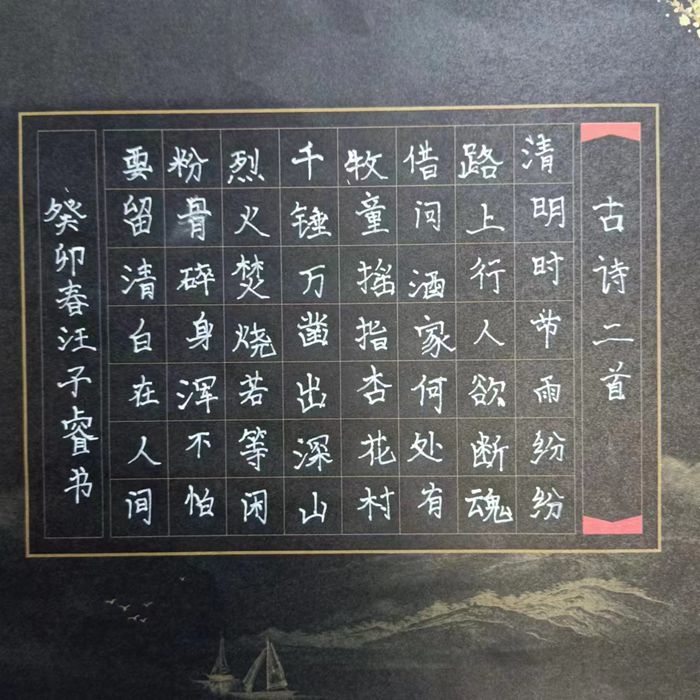 古诗二首
清明时节雨纷纷
路上行人欲断魂
借问酒家何处有
牧童摇指杏花村
千锤万凿出深山
烈火焚烧若等闲
粉骨碎身浑不怕
要留清白在人间
癸卯春汪子睿书